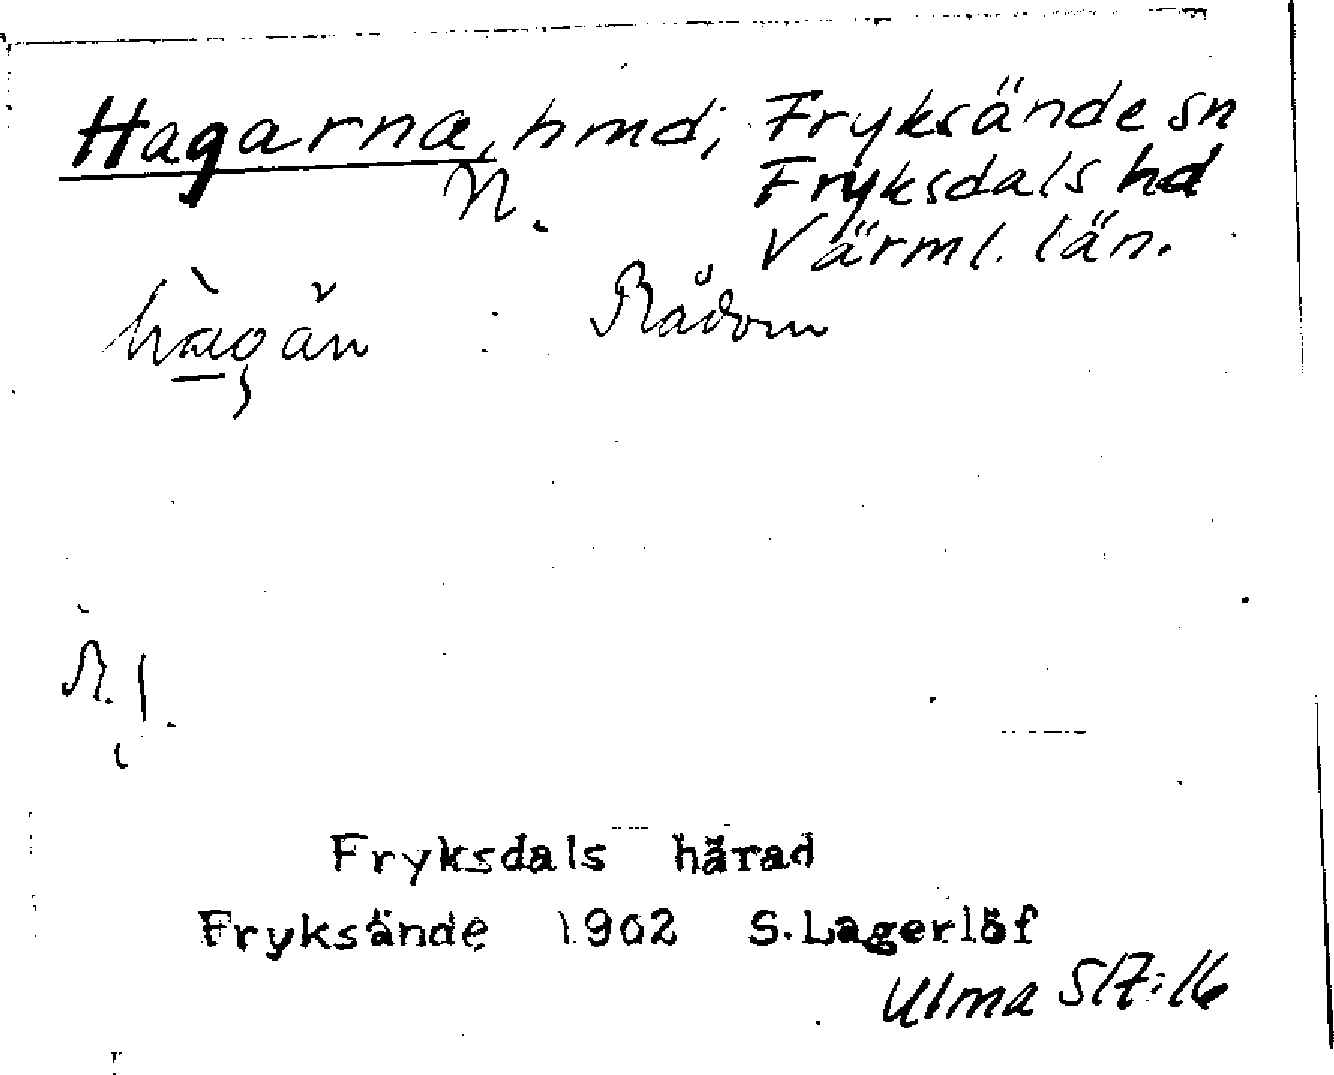 Hagarna, hmd; Fryksände sn
N. Fryksdals hd
Värml. län.
hagan Rådom
R. 1.
Fryksdals härad
Fryksände 1902 S. Lagerlöf
Ulma 517:16